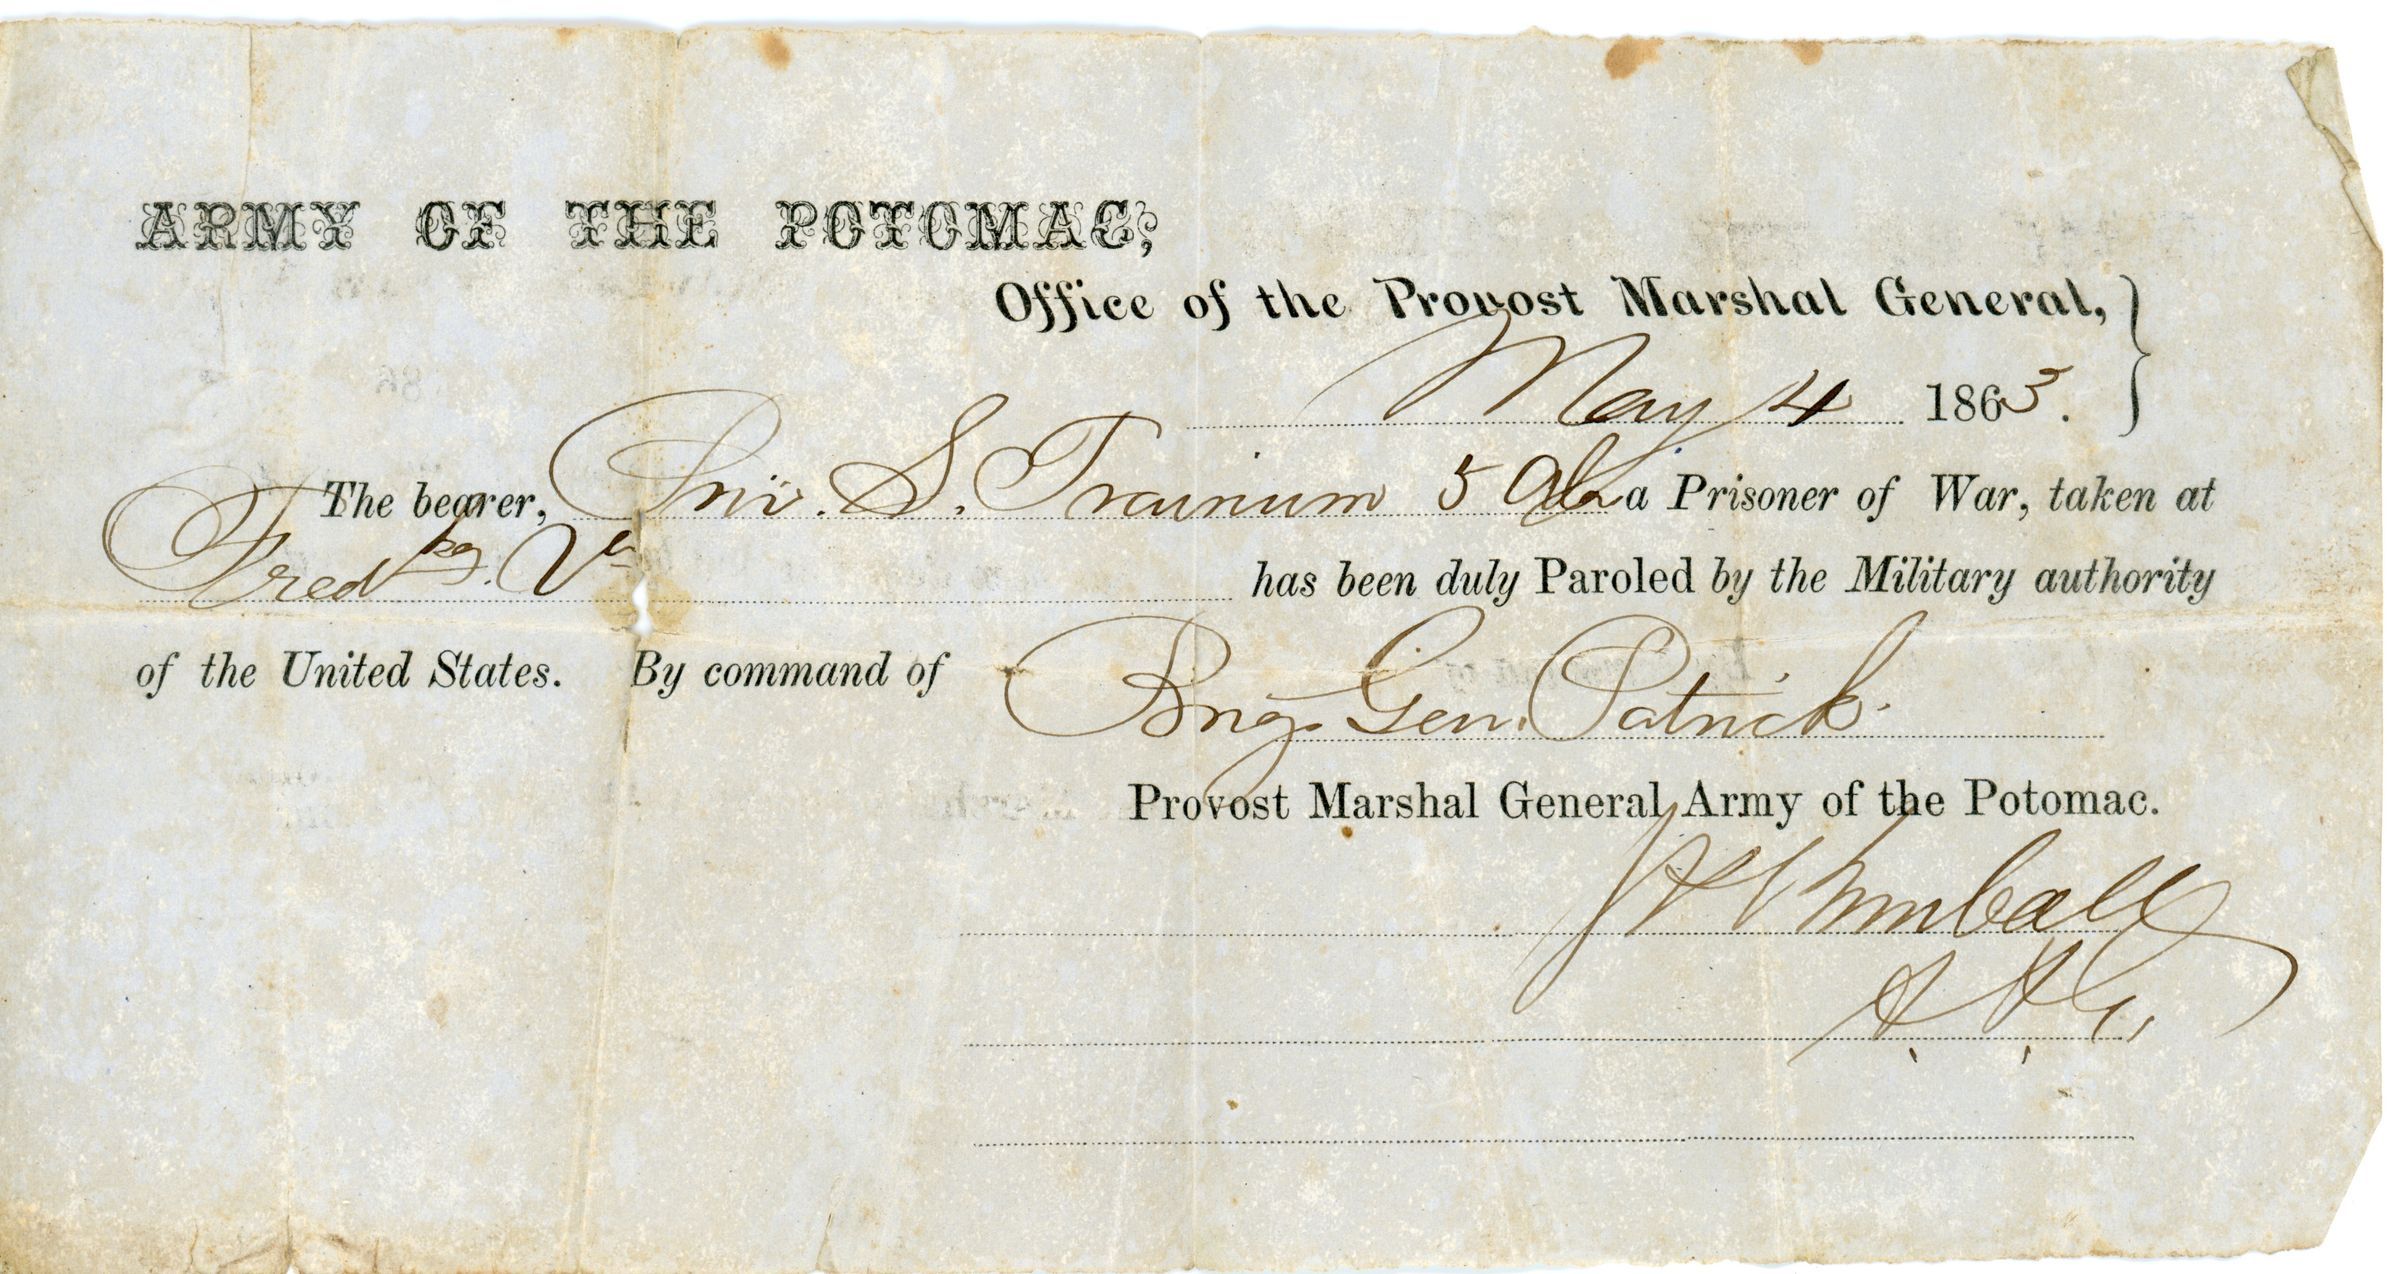 ARMY OF THE POTOMAC,
Office of the Provost Marshal General,
May 4 1863.
The bearer, Priv. S. Trainum 5 Ala a Prisoner of War, taken at
Fredbg. Va has been duly Paroled by the Military authority
of the United States. By command of Brig. Gen. Patrick
Provost Marshal General Army of the Potomac.
Kimball
A. A. G.